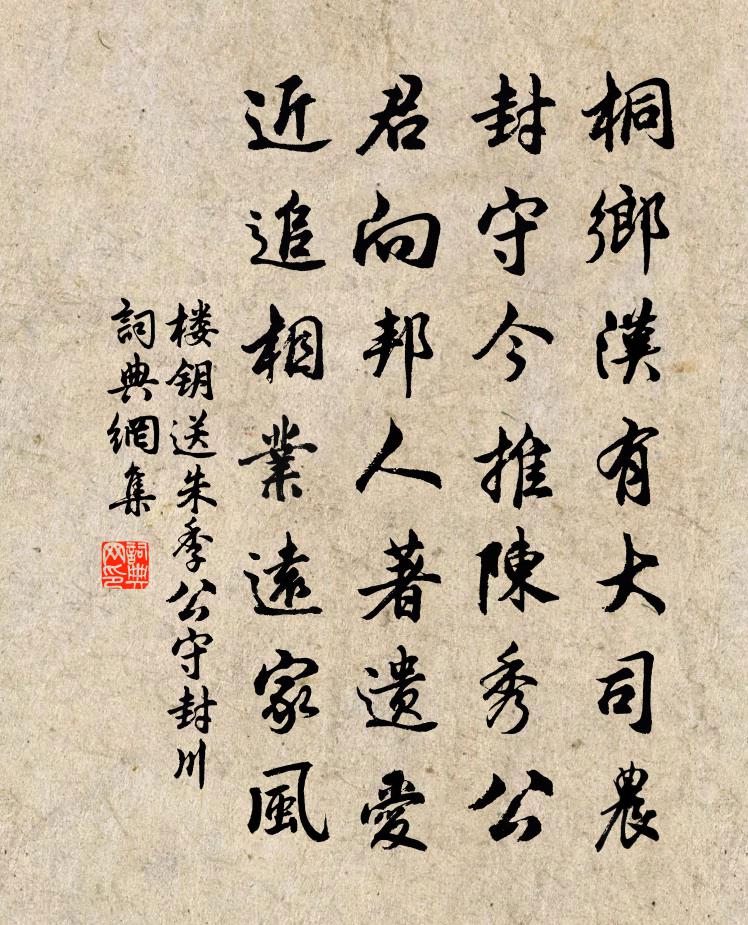 桐鄉漢有大司農
封守今推陳秀公
君向邦人著遺愛
近追相業遠家風
楼钥送朱季公守封川
詞典網集
詞典网印